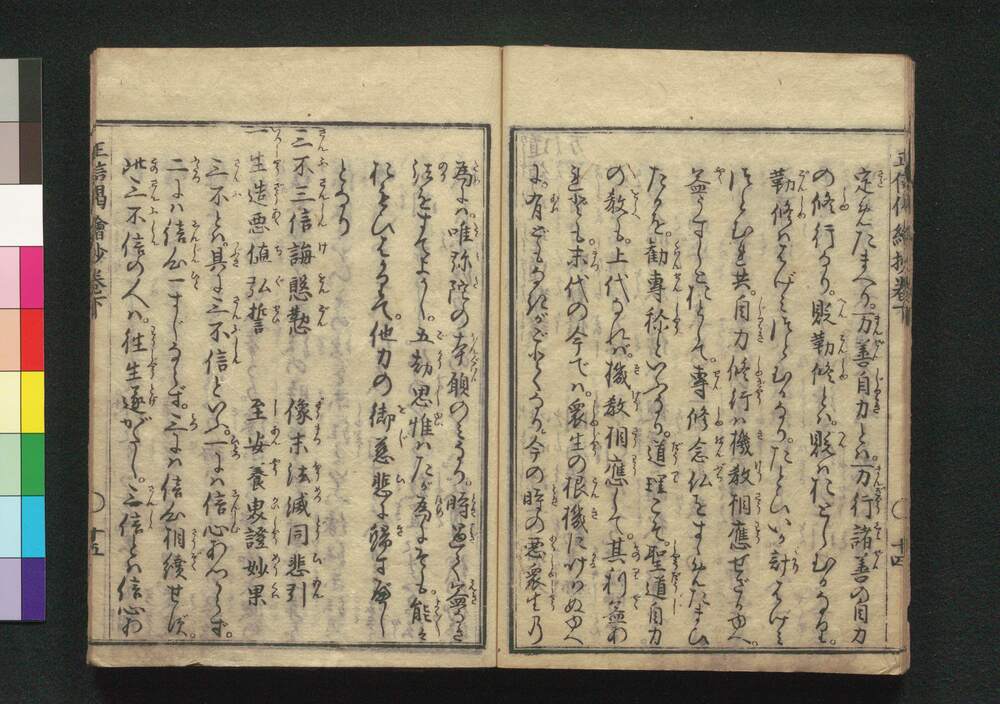 正信偈繪抄卷下
十四
定めたまへり。万善自力とは。万行諸善の自力
の修行なり。貶勤修とは。貶はおとしむるなり。
勤修ははげみつとむるなり。たとひいか計はげみ
つとむとも。自力修行は機教相應せざるゆへ。
益なしとおとして。専修念仏をすゝめたまひ
たるを。勸専称といふなり。道理こそ。聖道自力
の教も。上代なれば。機教相應して。其利益あ
れども。末代の今では。衆生の根機にかけはぬゆへ
に。有どもなきがごとくなり。今の時の悪衆生乃
為には。唯弥陀の本願のみなり。時過て益なき
法をすてよかし。五劫思惟はたが為にぞも。能々
おもひはかりて。他力の御慈悲に歸すべし
となり
三不三信誨慇懃 像末法滅同悲引
一生造悪値弘誓 至安養界證妙果
三不とは。具に三不信といふ。一には信心あつからず。
二には信心一すぢならず。三には信心相續せず。
此三不信の人は。往生遂がたし。三信とは信心あ
正信偈繪抄卷下
十五